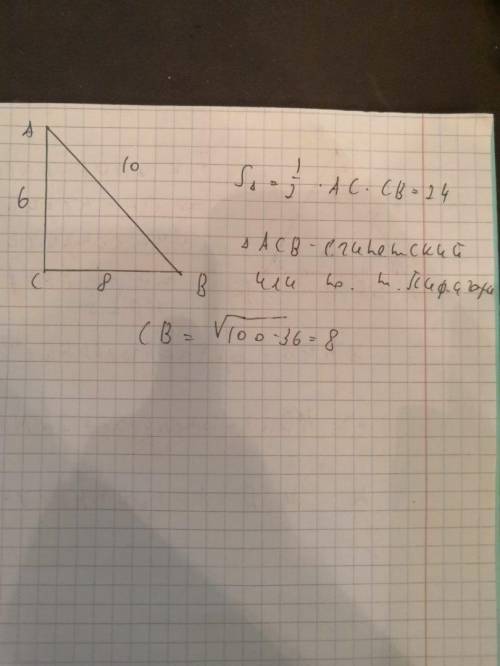 A
10
6
C
8
B
S∆ = 1/2 · AC · CB = 24
∆ ACB - египетский
или по т. Пифагора
CB = √100-36 = 8